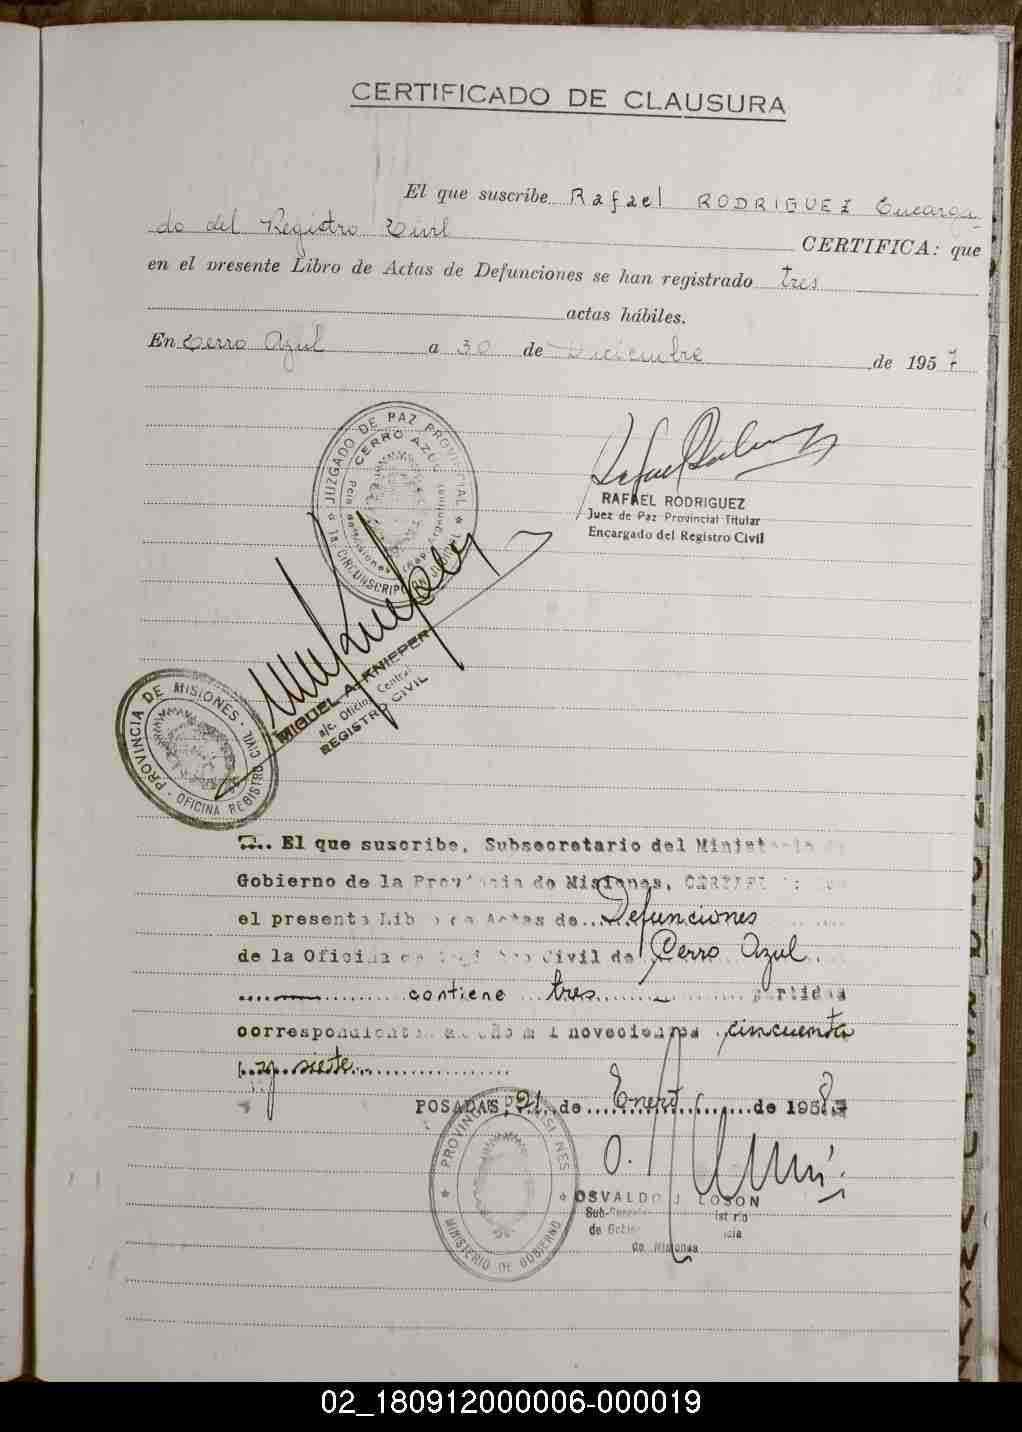 CERTIFICADO DE CLAUSURA
El que suscribe Rafael RODRIGUEZ Encarga
do del Registro Civil CERTIFICA: que
en el presente Libro de Actas de Defunciones se han registrado tres
actas hábiles.
En Cerro Azul a 30 de Diciembre de 1957
JUZGADO DE PAZ PROVINCIAL
CERRO AZUL
RAFAEL RODRIGUEZ
Juez de Paz Provincial Titular
Encargado del Registro Civil
MIGUEL A. KNIEPER
a/c. Oficina Central
REGISTRO CIVIL
PROVINCIA DE MISIONES
OFICINA REGISTRO CIVIL
El que suscribe, Subsecretario del Ministerio de
Gobierno de la Provincia de Misiones, CERTIFI
el presente Libro de Actas de Defunciones
de la Oficina de Registro Civil de Cerro Azul
contiene tres partidas
correspondientes al año mil novecientos cincuenta
y siete
POSADAS, 21 de Enero de 1958
PROVINCIA DE MISIONES
MINISTERIO DE GOBIERNO
OSVALDO J. LOSON
de Misiones
02_180912000006-000019